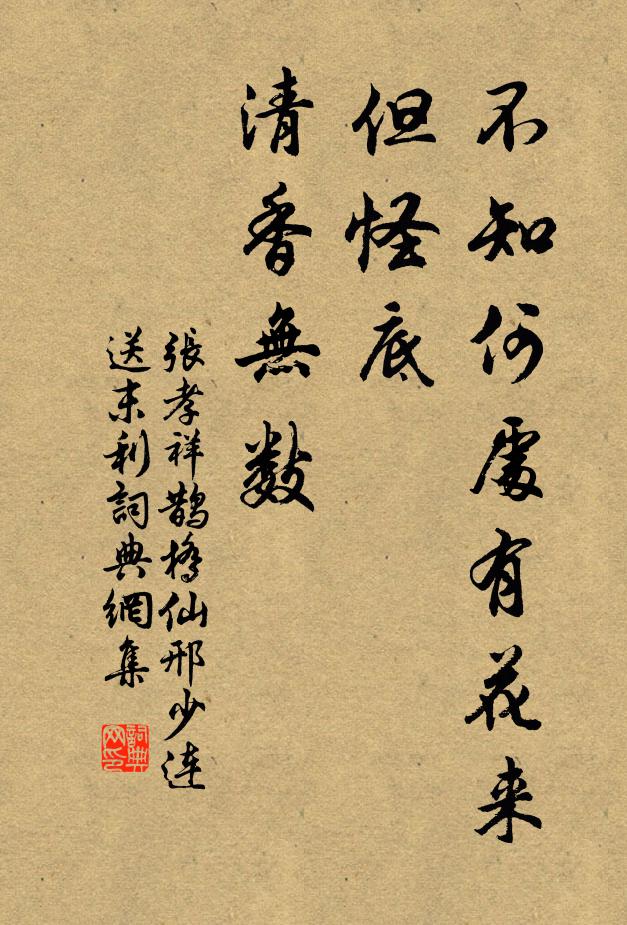 不知何處有花来
但怪底
清香無数
張孝祥鵲橋仙邢少連
送末利詞典網集
詞典网印